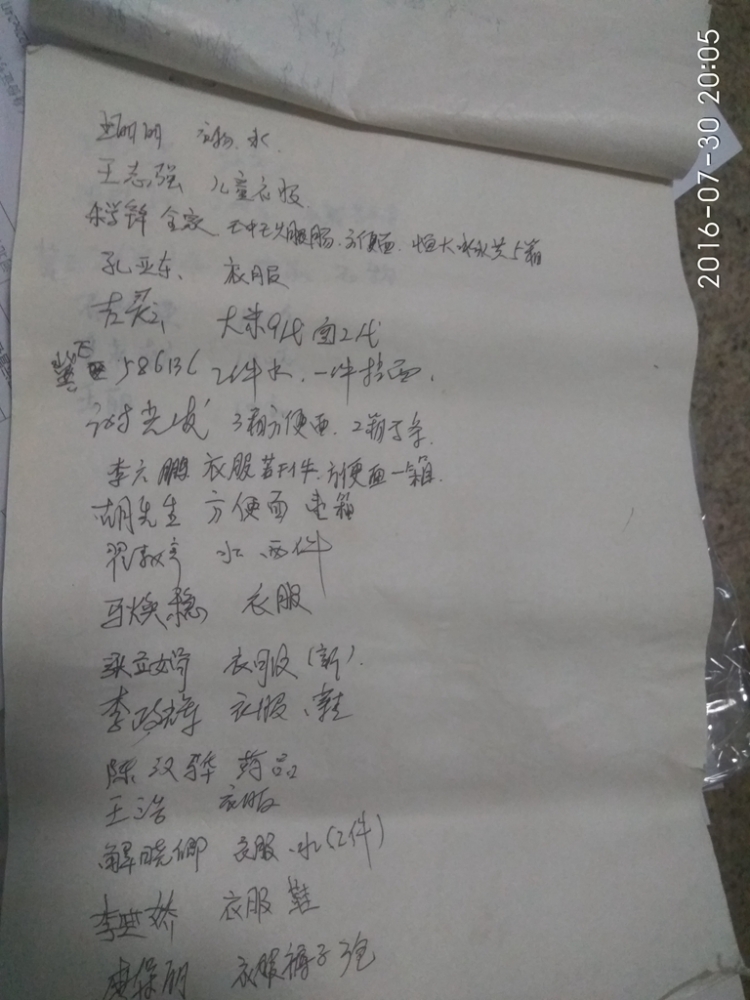 2016-07-30 20:05
明明 衣物 水.
王志强 儿童衣服
锋 全家 火腿肠.方便面.恒大冰水共5箱
孔亚东、衣服
大米9代 面2代
586136 2件水.一件挂面.
3箱方便面.2箱
李六鹏 衣服若干件.方便面一箱.
胡先生 方便面 壹箱
翟 水 两件
马焕稳 衣服
衣服(新).
李政辉 衣服、鞋
陈汉骅 药品
王浩 衣服
解晓卿 衣服.水(2件)
李 娇 衣服 鞋
康保明 衣服裤子 包